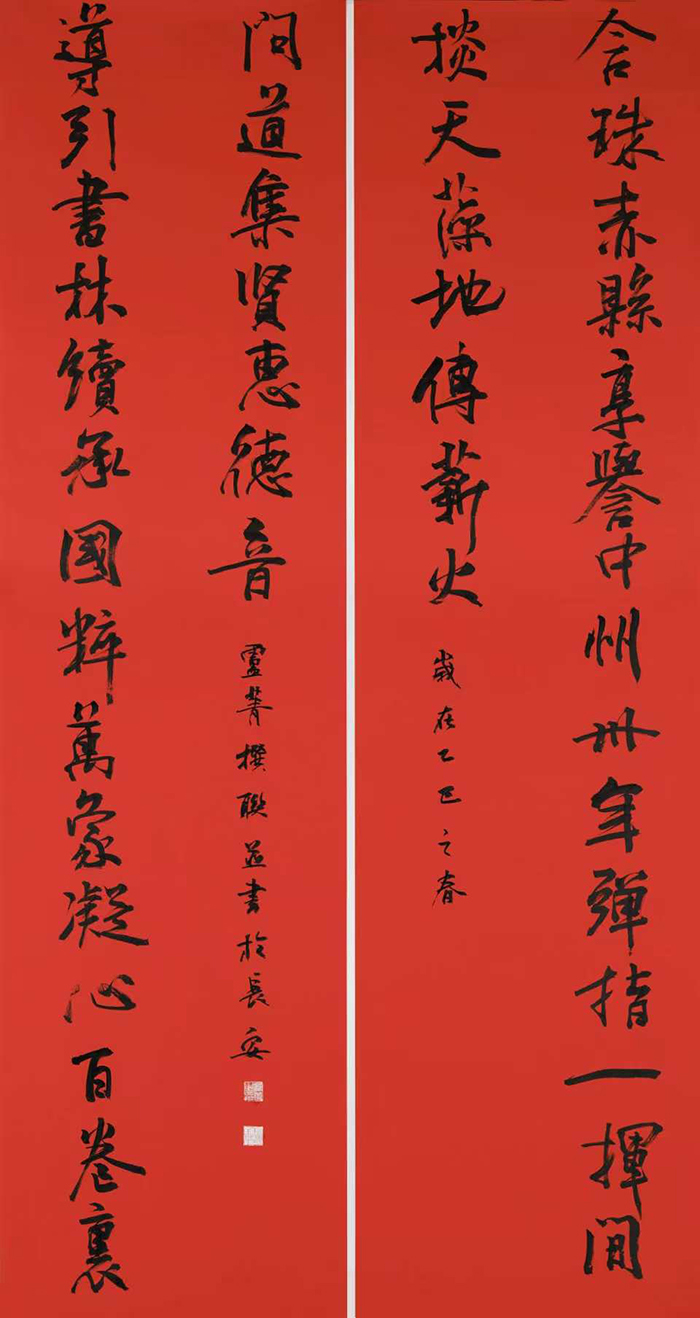 含珠赤縣享譽中州卅年彈指一揮間
掞天藻地傳薪火
歲在乙巳之春
導引書林續承國粹萬象凝心百卷裏
問道集賢惠德音
菁撰聯並書於長安